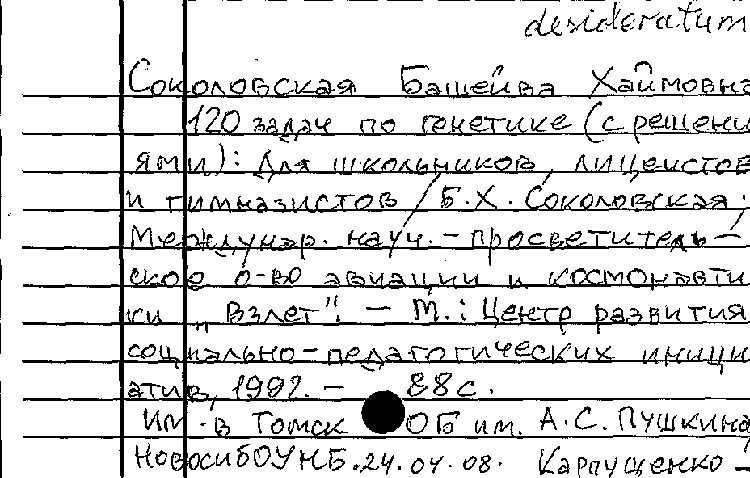 desideratum
Соколовская Башейва Хаймовна
120 задач по генетике (с решени
ями): Для школьников, лицеистов
и гимназистов / Б.Х. Соколовская;
Междунар. науч. - просветитель-
ское о-во авиации и космонавти
ки „Взлет". - М.: Центр развития
социально-педагогических иници
атив, 1992. - 88 с.
Им. в Томск ОБ им. А.С. Пушкина
НовосибОУНБ. 24.04.08. Карпущенко -